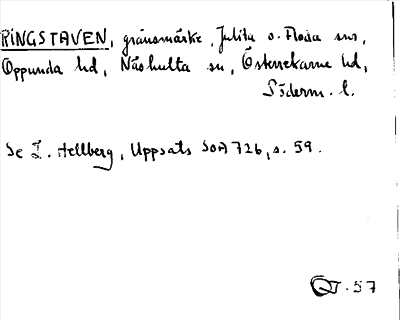 RINGSTAVEN, gränsmärke, Julita o. Floda snr,
Oppunda hd, Näshulta sn, Österrekarne hd,
Söderm. l.
Se L. Hellberg, Uppsats SOA 726, s. 59.
57